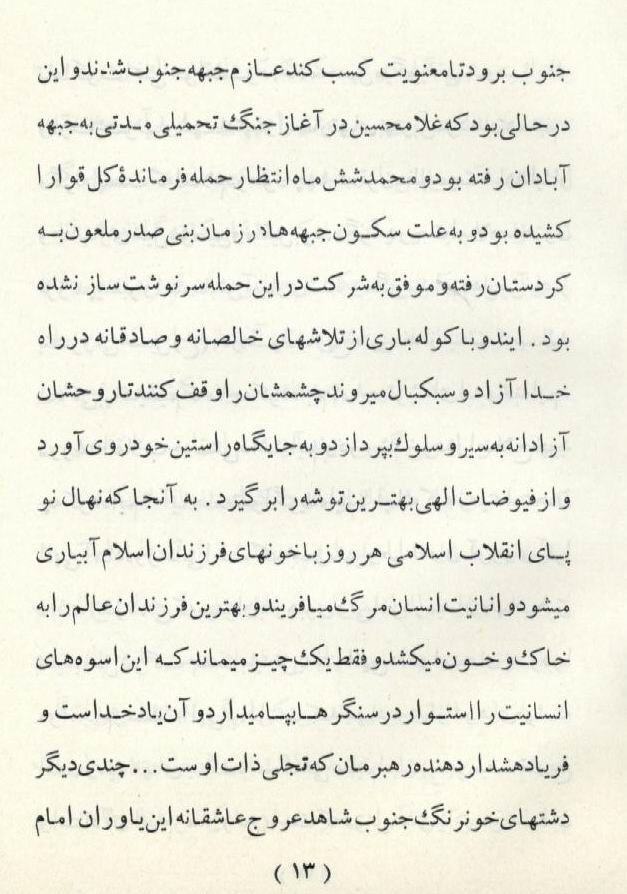 جنوب برود تا معنویت کسب کند عازم جبهه جنوب شدند و این
در حالی بود که غلامحسین در آغاز جنگ تحمیلی مدتی به جبهه
آبادان رفته بود و محمد شش ماه انتظار حمله فرماندهٔ کل قوا را
کشیده بود و به علت سکون جبهه ها در زمان بنی صدر ملعون به
کردستان رفته و موفق به شرکت در این حمله سرنوشت ساز نشده
بود . ایندو با کوله باری از تلاشهای خالصانه و صادقانه در راه
خدا آزاد و سبکبال میروند چشمشان را وقف کنند تا روحشان
آزادانه به سیر و سلوک بپردازد و به جایگاه راستین خود روی آورد
و از فیوضات الهی بهترین توشه را برگیرد . به آنجا که نهال نو
پای انقلاب اسلامی هر روز با خونهای فرزندان اسلام آبیاری
میشود و انانیت انسان مرگ میافریند و بهترین فرزندان عالم را به
خاک و خون میکشد و فقط یک چیز میماند که این اسوه های
انسانیت را استوار در سنگر ها بپا میدارد و آن یاد خداست و
فریاد هشدار دهنده رهبرمان که تجلی ذات اوست ... چندی دیگر
دشتهای خونرنگ جنوب شاهد عروج عاشقانه این یاوران امام
( ۱۳ )